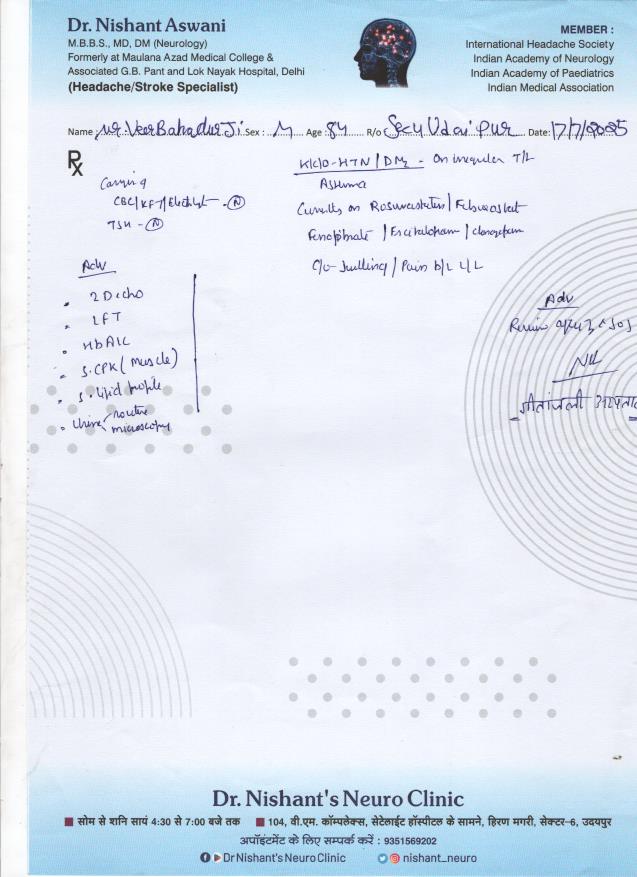 Dr. Nishant Aswani
M.B.B.S., MD, DM (Neurology)
Formerly at Maulana Azad Medical College &
Associated G.B. Pant and Lok Nayak Hospital, Delhi
(Headache/Stroke Specialist)
MEMBER :
International Headache Society
Indian Academy of Neurology
Indian Academy of Paediatrics
Indian Medical Association
Name : Mr. Veer Bahadur Ji Sex : M Age : 84 R/o Udaipur Date: 17/7/2025
Rx
CBC/KFT/ - (N)
TSH - (N)
Adv
2D echo
LFT
HbA1C
S. CPK (muscle)
S. lipid profile
Urine routine
microscopy
K/C/O - HTN / DM2 - On irregular T/t
Asthma
Currently on Rosuvastatin / Febuxostat
Fenofibrate / Escitalopram / clonazepam
C/o - / Pain b/L L/L
Adv
Review
गीतांजली
Dr. Nishant's Neuro Clinic
सोम से शनि सायं 4:30 से 7:00 बजे तक 104, वी.एम. कॉम्पलेक्स, सेटेलाईट हॉस्पीटल के सामने, हिरण मगरी, सेक्टर-6, उदयपुर
अपॉइंटमेंट के लिए सम्पर्क करें : 9351569202
Dr Nishant's Neuro Clinic nishant_neuro